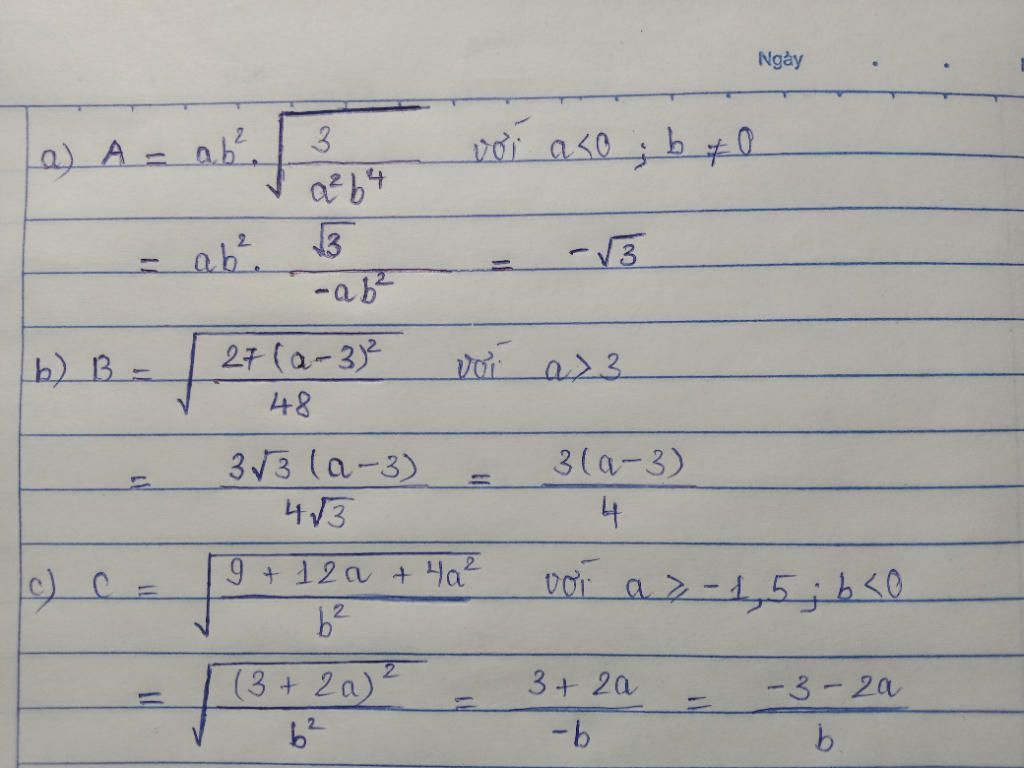 Ngày . .
a) A = ab². √(3/(a²b⁴)) với a<0 ; b ≠ 0
= ab². √3/(-ab²) = -√3
b) B = √(27(a-3)²/48) với a>3
= 3√3(a-3)/(4√3) = 3(a-3)/4
c) C = √((9 + 12a + 4a²)/b²) với a ⩾ -1,5 ; b<0
= √((3 + 2a)²/b²) = (3 + 2a)/(-b) = (-3 - 2a)/b